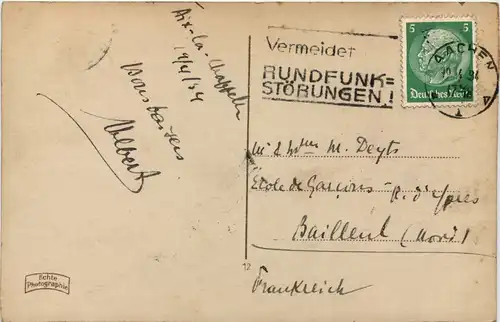 Aix-la-Chapelle
19/4/34
Bons baisers
Albert
Echte
Photographie
12
Vermeidet
RUNDFUNK=
STÖRUNGEN!
5 5
Deutsches Reich
AACHEN
M. Deyts
École de Garçons - R. d'Ypres
Bailleul (Nord)
Frankreich